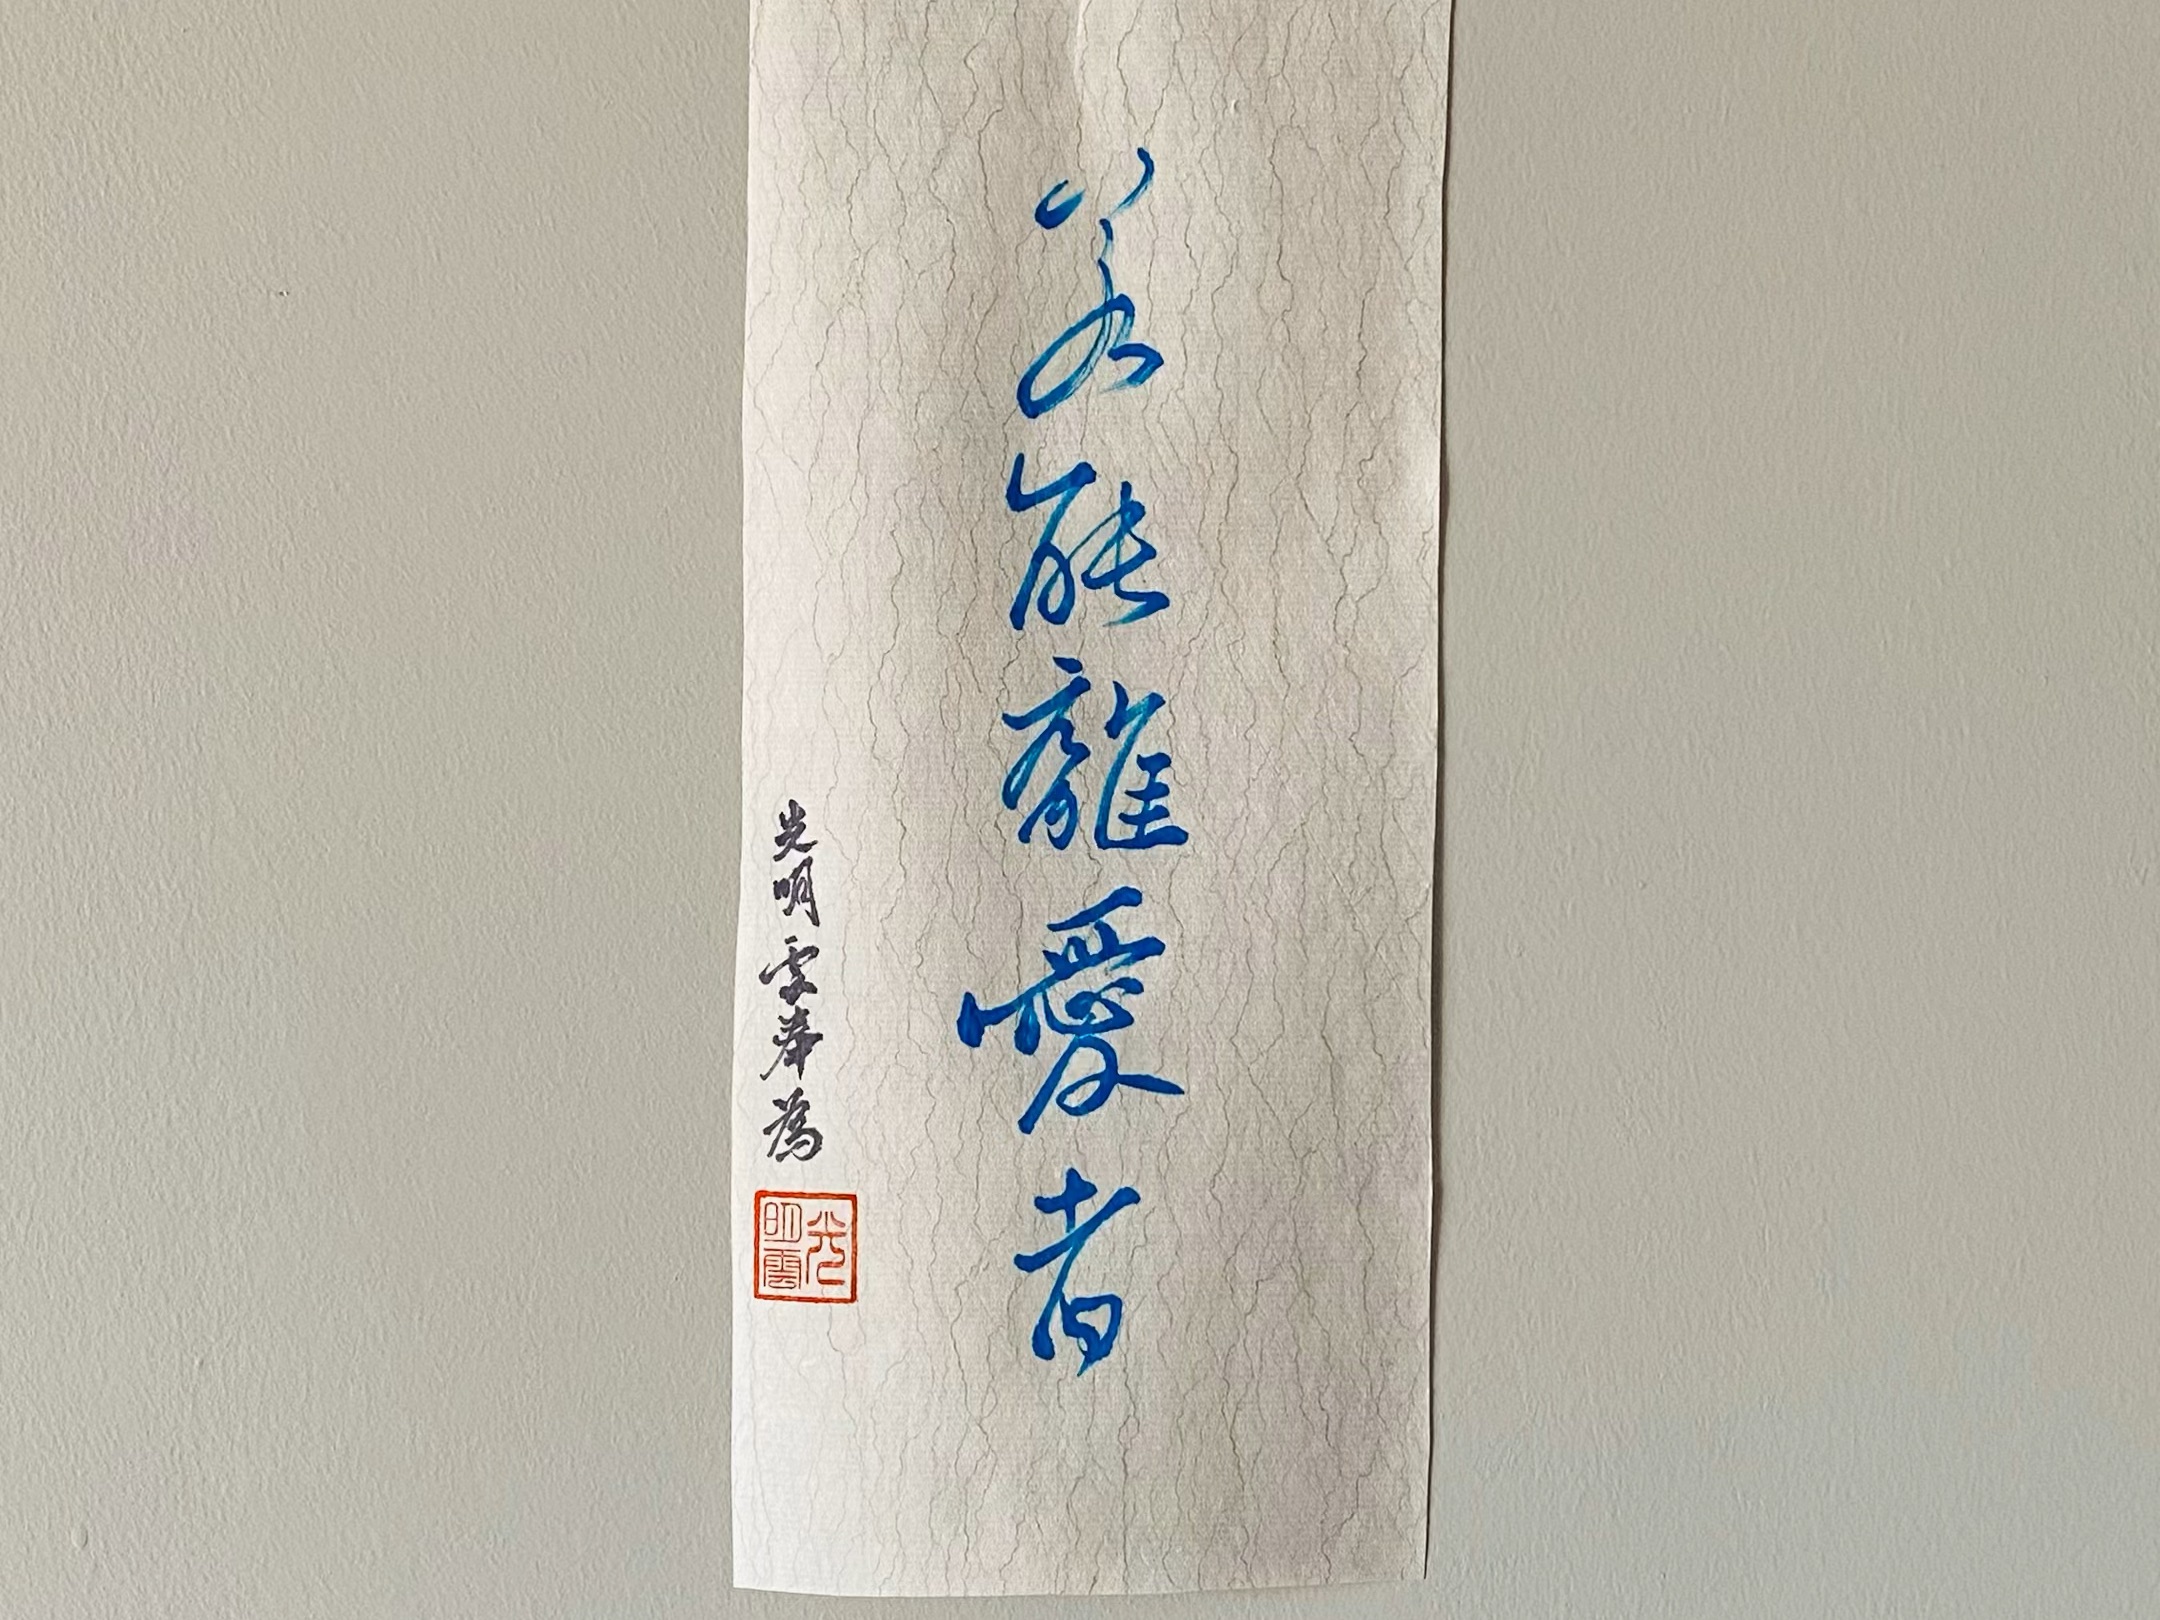 若能離愛者
光明雲奉為
光明雲